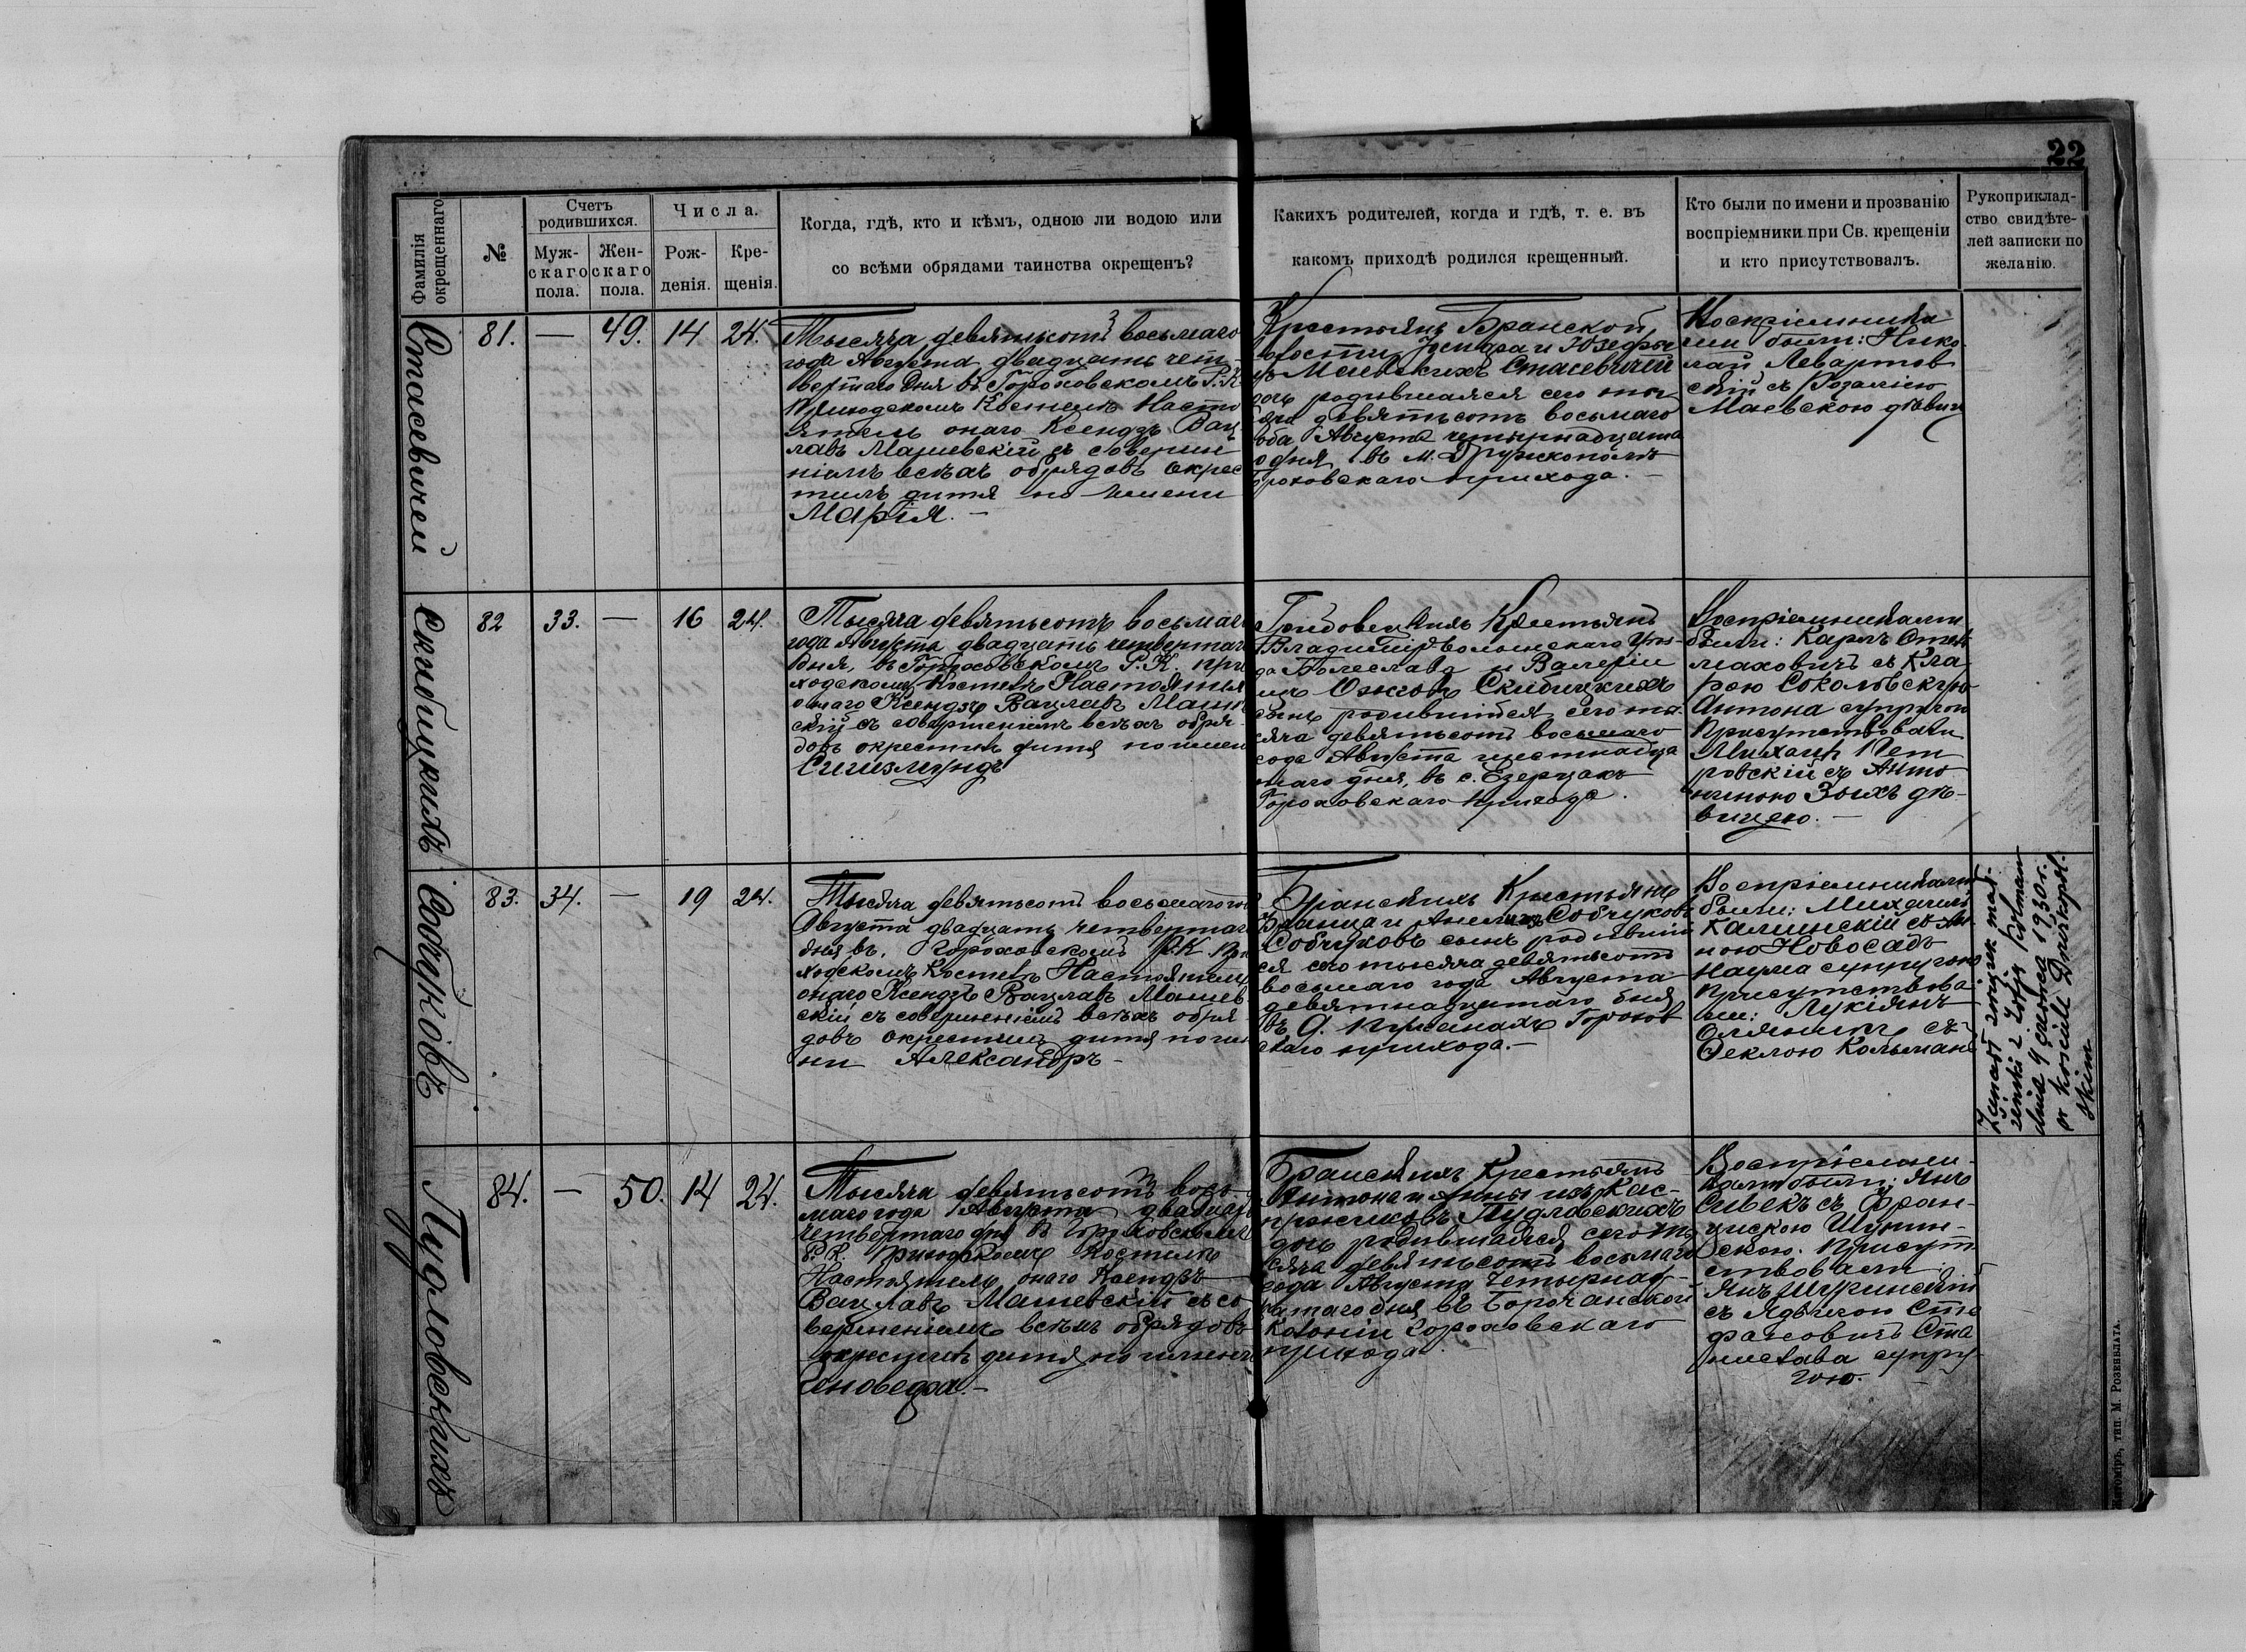 22
Фамилія окрещеннаго
№
Счетъ родившихся.
Муж-скаго пола.
Жен-скаго пола.
Числа.
Рож-денія.
Кре-щенія.
Когда, гдѣ, кто и кѣмъ, одною ли водою или
со всѣми обрядами таинства окрещенъ?
Какихъ родителей, когда и гдѣ, т. е. въ
какомъ приходѣ родился крещенный.
Кто были по имени и прозванію
воспріемники при Св. крещеніи
и кто присутствовалъ.
Рукоприклад-
ство свидѣте-
лей записки по
желанію.
Стасевичей
81. — 49. 14 24.
Тысяча девятьсотъ восьмаго
года Августа двадцать чет-
вертаго дня въ Гороховскомъ Р. К.
Приходскомъ Костелѣ Насто
ятель онаго Ксендзъ Вац
лавъ Машевскій съ соверше
ніемъ всѣхъ обрядовъ окрес
тилъ дитя по имени
Марія. —
Крестьянъ Бранской
волости и Юзефы
изъ Маевскихъ Стасевичей
дочь родившаяся сего ты
сяча девятьсотъ восьмаго
года Августа четырнадцата
го дня въ м. Дружкополѣ
Гороховскаго прихода. —
Воспріемника
ми были: Нико
лай Левартов
скій съ Розаліею
Маевскою дѣвиц
Скибицкихъ
82 33. — 16 24.
Тысяча девятьсотъ восьмаго
года Августа двадцать четвертаго
дня, въ Гороховскомъ Р. К. при
ходскомъ Костелѣ Настоятель
онаго Ксендзъ Вацлавъ Машев
скій съ совершеніемъ всѣхъ обря
довъ окрестилъ дитя по имени
Сигизмундъ
Крестьянъ
Владиміръ-волынскаго уѣз-
да Болеслава и Валеріи
изъ Скибицкихъ
сынъ родившійся сего ты-
сяча девятьсотъ восьмаго
года Августа шестнадца
таго дня, въ с. Езерцахъ
Гороховскаго прихода.
Воспріемниками
были: Карлъ
маховичъ съ Кла
рою Соколовскою
Антона супругою
Присутствовали
Михаилъ Пет
ровскій съ Анто
ниною Зыхъ дѣ-
вицею. —
Собчуковъ
83. 34. — 19 24.
Тысяча девятьсотъ восьмаго го
Августа двадцать четвертаго
дня въ Гороховскомъ Р. К. при
ходскомъ Костелѣ Настоятель
онаго Ксендзъ Вацлавъ Машев
скій съ совершеніемъ всѣхъ обря
довъ окрестилъ дитя по име
ни Александръ —
Бранскихъ Крестьянъ
и Анели изъ Собчуковъ
Собчуковъ сынъ родившій
ся сего тысяча девятьсотъ
восьмаго года Августа
девятнадцатаго дня
въ Гороховс
скаго прихода. —
Воспріемниками
были: Михаилъ
Калинскій съ Ан
ною Новосадъ
Наума супругою
присутствова
ли: Лукіянъ
съ
Ѳеклою Кольманъ
Zawarł związek mał-
żeński z Zofją Kolman
dnia 4 czerwca 1930 r.
w kościele Drużkopol-
skim
Пудловскихъ
84. — 50. 14 24.
Тысяча девятьсотъ вось-
маго года Августа двадцать
четвертаго дня въ Гороховскомъ
Р. К. Приходскомъ Костелѣ
Настоятель онаго Ксендзъ
Вацлавъ Машевскій съ со
вершеніемъ всѣхъ обрядовъ
окрестилъ дитя по имени
Геновефа. —
Бранскихъ Крестьянъ
Антона и Анны изъ Кас-
Пудловскихъ
дочь родившаяся сего ты
сяча девятьсотъ восьмаго
года Августа четырнад-
цатаго дня въ Борочанской
Колоніи Гороховскаго
прихода. —
Воспріемни-
ками были: Янъ
Сивекъ съ Фран-
цискою
Присут
ствовали
Янъ
съ Ядвигою Сте
фановичъ Ста
нислава супру-
гою. —
тип. М. Розенблата.